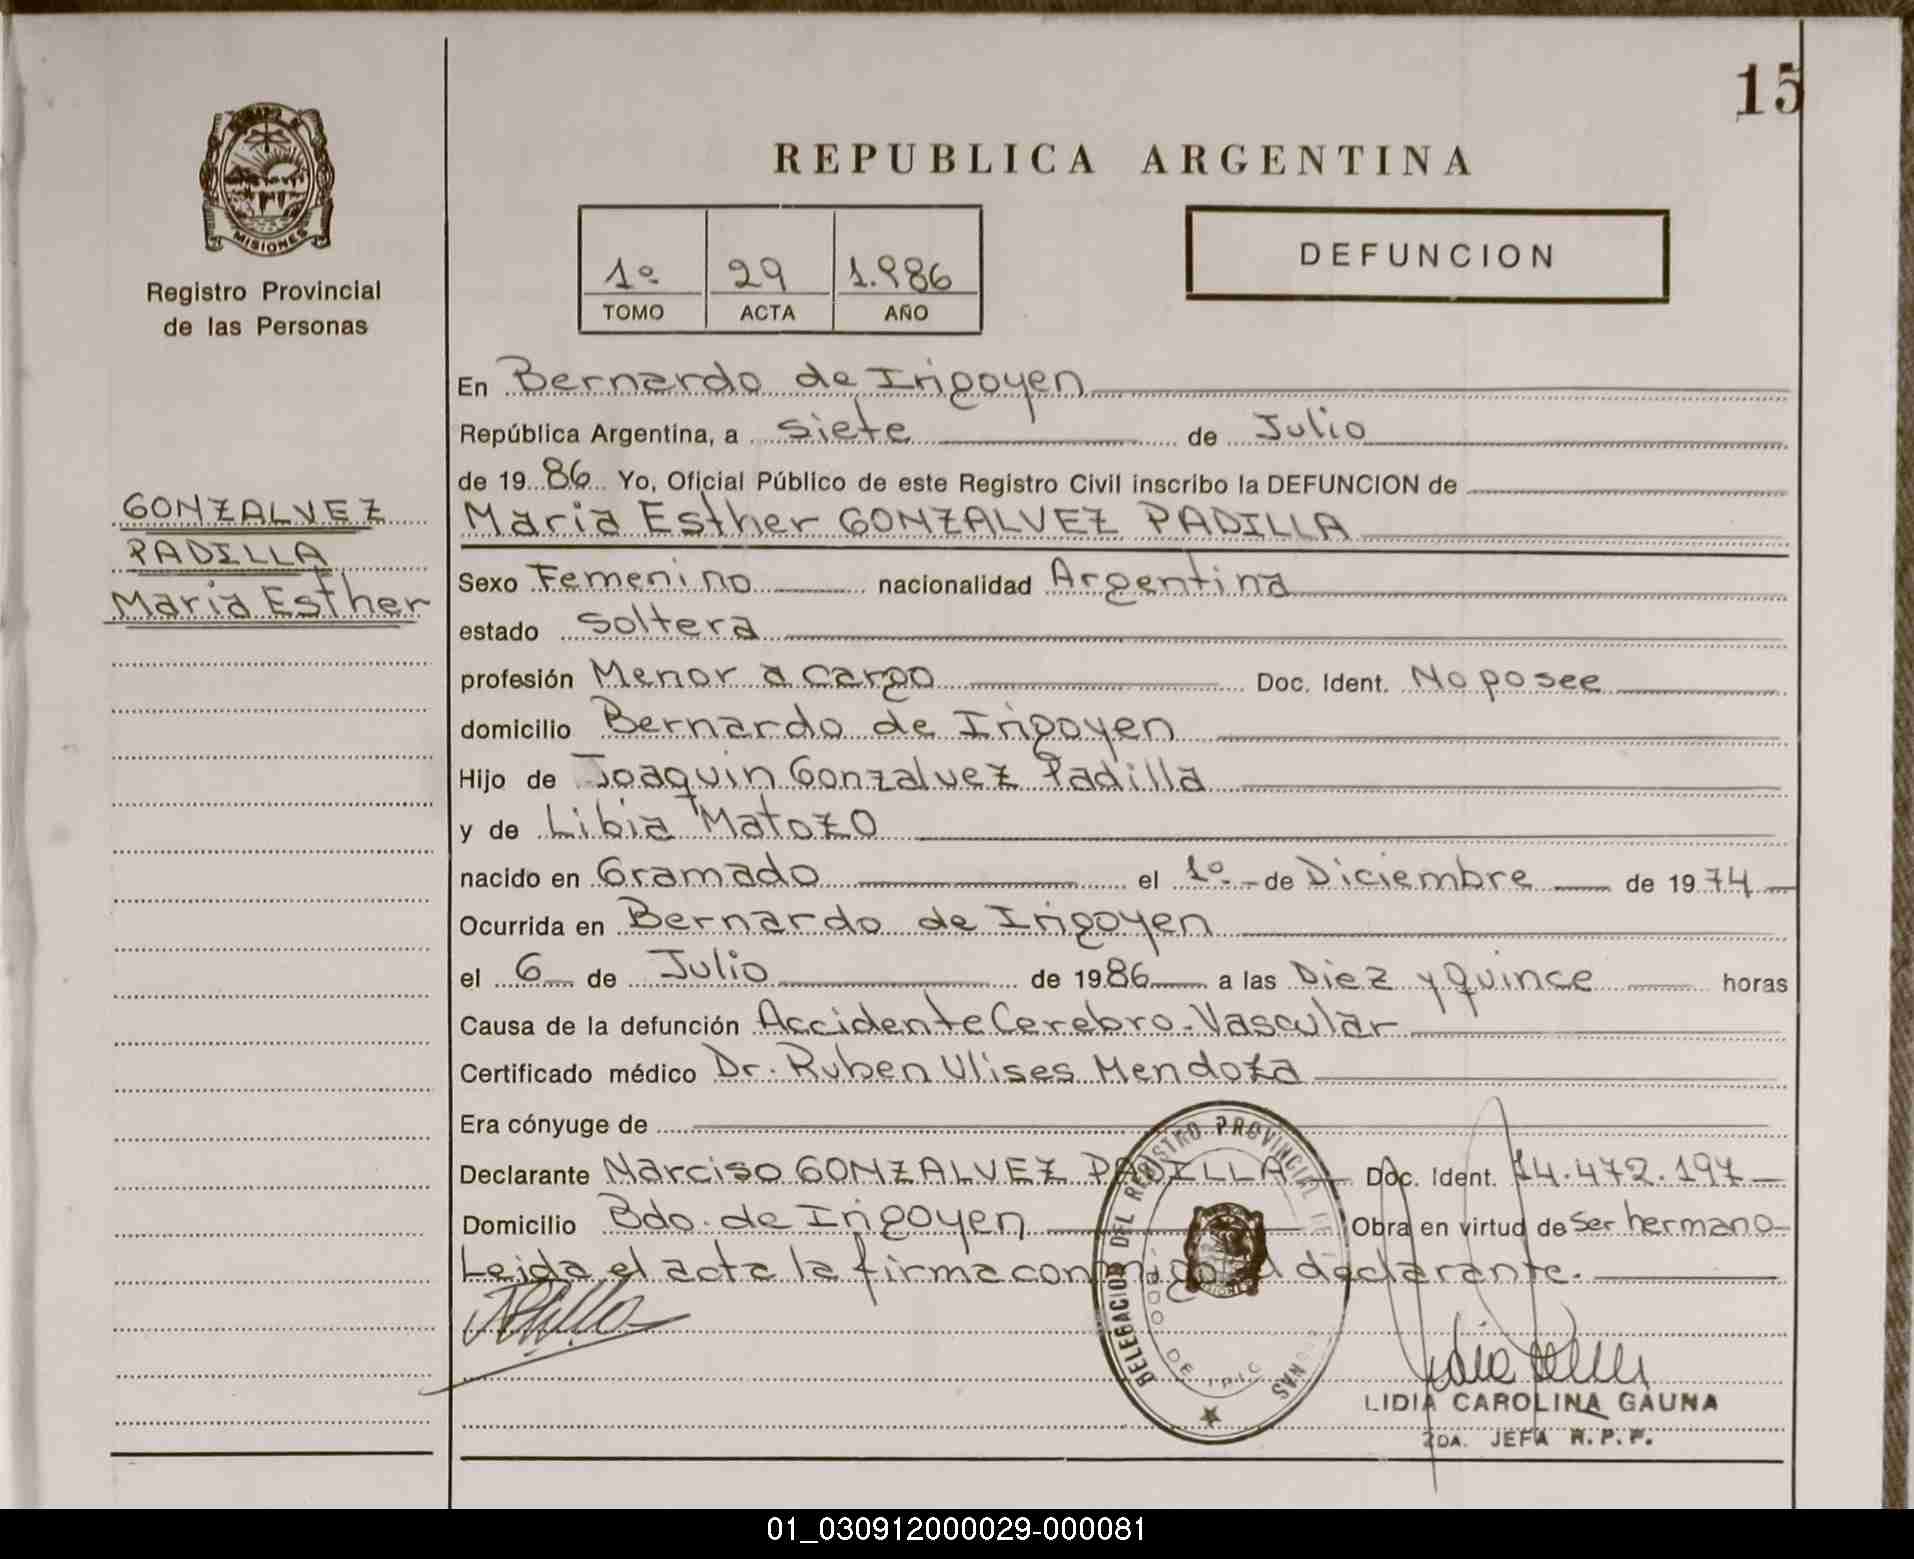 15
REPUBLICA ARGENTINA
MISIONES
Registro Provincial
de las Personas
1º 29 1.986
TOMO ACTA AÑO
DEFUNCION
GONZALVEZ
PADILLA
Maria Esther
En Bernardo de Irigoyen
República Argentina, a siete de Julio
de 1986 Yo, Oficial Público de este Registro Civil inscribo la DEFUNCION de
Maria Esther GONZALVEZ PADILLA
Sexo Femenino nacionalidad Argentina
estado Soltera
profesión Menor a cargo Doc. Ident. No posee
domicilio Bernardo de Irigoyen
Hijo de Joaquin Gonzalvez Padilla
y de Libia Matozo
nacido en Gramado el 1º de Diciembre de 1974
Ocurrida en Bernardo de Irigoyen
el 6 de Julio de 1986 a las Diez y quince horas
Causa de la defunción Accidente Cerebro-Vascular
Certificado médico Dr. Ruben Ulises Mendoza
Era cónyuge de
Declarante Narciso GONZALVEZ PADILLA Doc. Ident. 14.472.197
Domicilio Bdo. de Irigoyen Obra en virtud de Ser hermano
Leida el acta la firma conmigo el declarante.
DELEGACION DEL REGISTRO PROVINCIAL DE
BDO DE IRIG
LIDIA CAROLINA GAUNA
2DA. JEFA R.P.P.
01_030912000029-000081